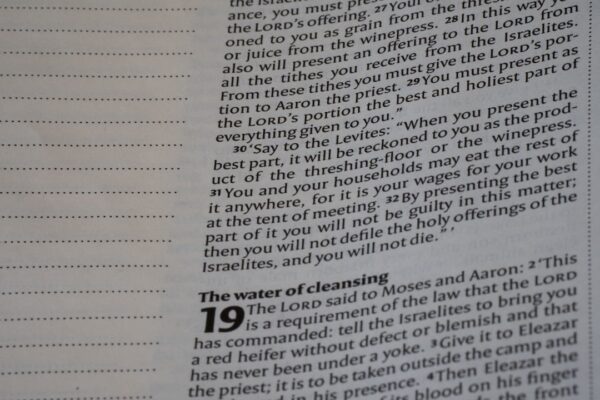 the Israelites
ance, you must pres
the LORD's offering. 27Your
oned to you as grain from the thres
or juice from the winepress. 28In this way yo
also will present an offering to the LORD from
all the tithes you receive from the Israelites.
From these tithes you must give the LORD's por-
tion to Aaron the priest. 29You must present as
the LORD's portion the best and holiest part of
everything given to you."
30'Say to the Levites: "When you present the
best part, it will be reckoned to you as the prod-
uct of the threshing-floor or the winepress.
31You and your households may eat the rest of
it anywhere, for it is your wages for your work
at the tent of meeting. 32By presenting the best
part of it you will not be guilty in this matter;
then you will not defile the holy offerings of the
Israelites, and you will not die."'
The water of cleansing
19 The LORD said to Moses and Aaron: 2'This
is a requirement of the law that the LORD
has commanded: tell the Israelites to bring you
a red heifer without defect or blemish and that
has never been under a yoke. 3Give it to Eleazar
the priest; it is to be taken outside the camp and
in his presence. 4Then Eleazar the
of its blood on his finger
the front